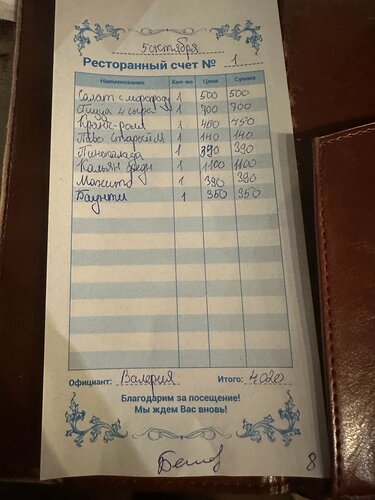 5 октября
Ресторанный счет № 1
Наименование Кол-во Цена Сумма
Салат с морепрод 1 500 500
Пицца 4 сыра 1 700 700
Кранч-ролл 1 450 450
Пиво старейм 1 140 140
Пинаколада 1 390 390
Кальян бедн 1 1100 1100
Мохито 1 390 390
Баунти 1 350 350
Официант: Валерия Итого: 4020
Благодарим за посещение!
Мы ждем Вас вновь!
8